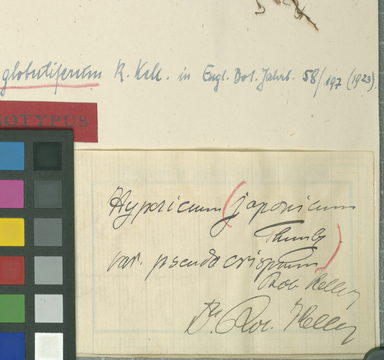 globuliferum R. Kell. in Engl. Bot. Jahrb. 58/197 (1923).
OTYPUS
Hypericum (japonicum
Thunbg.
var. pseudocrispum)
Rob. Keller
Dr. Rob. Keller